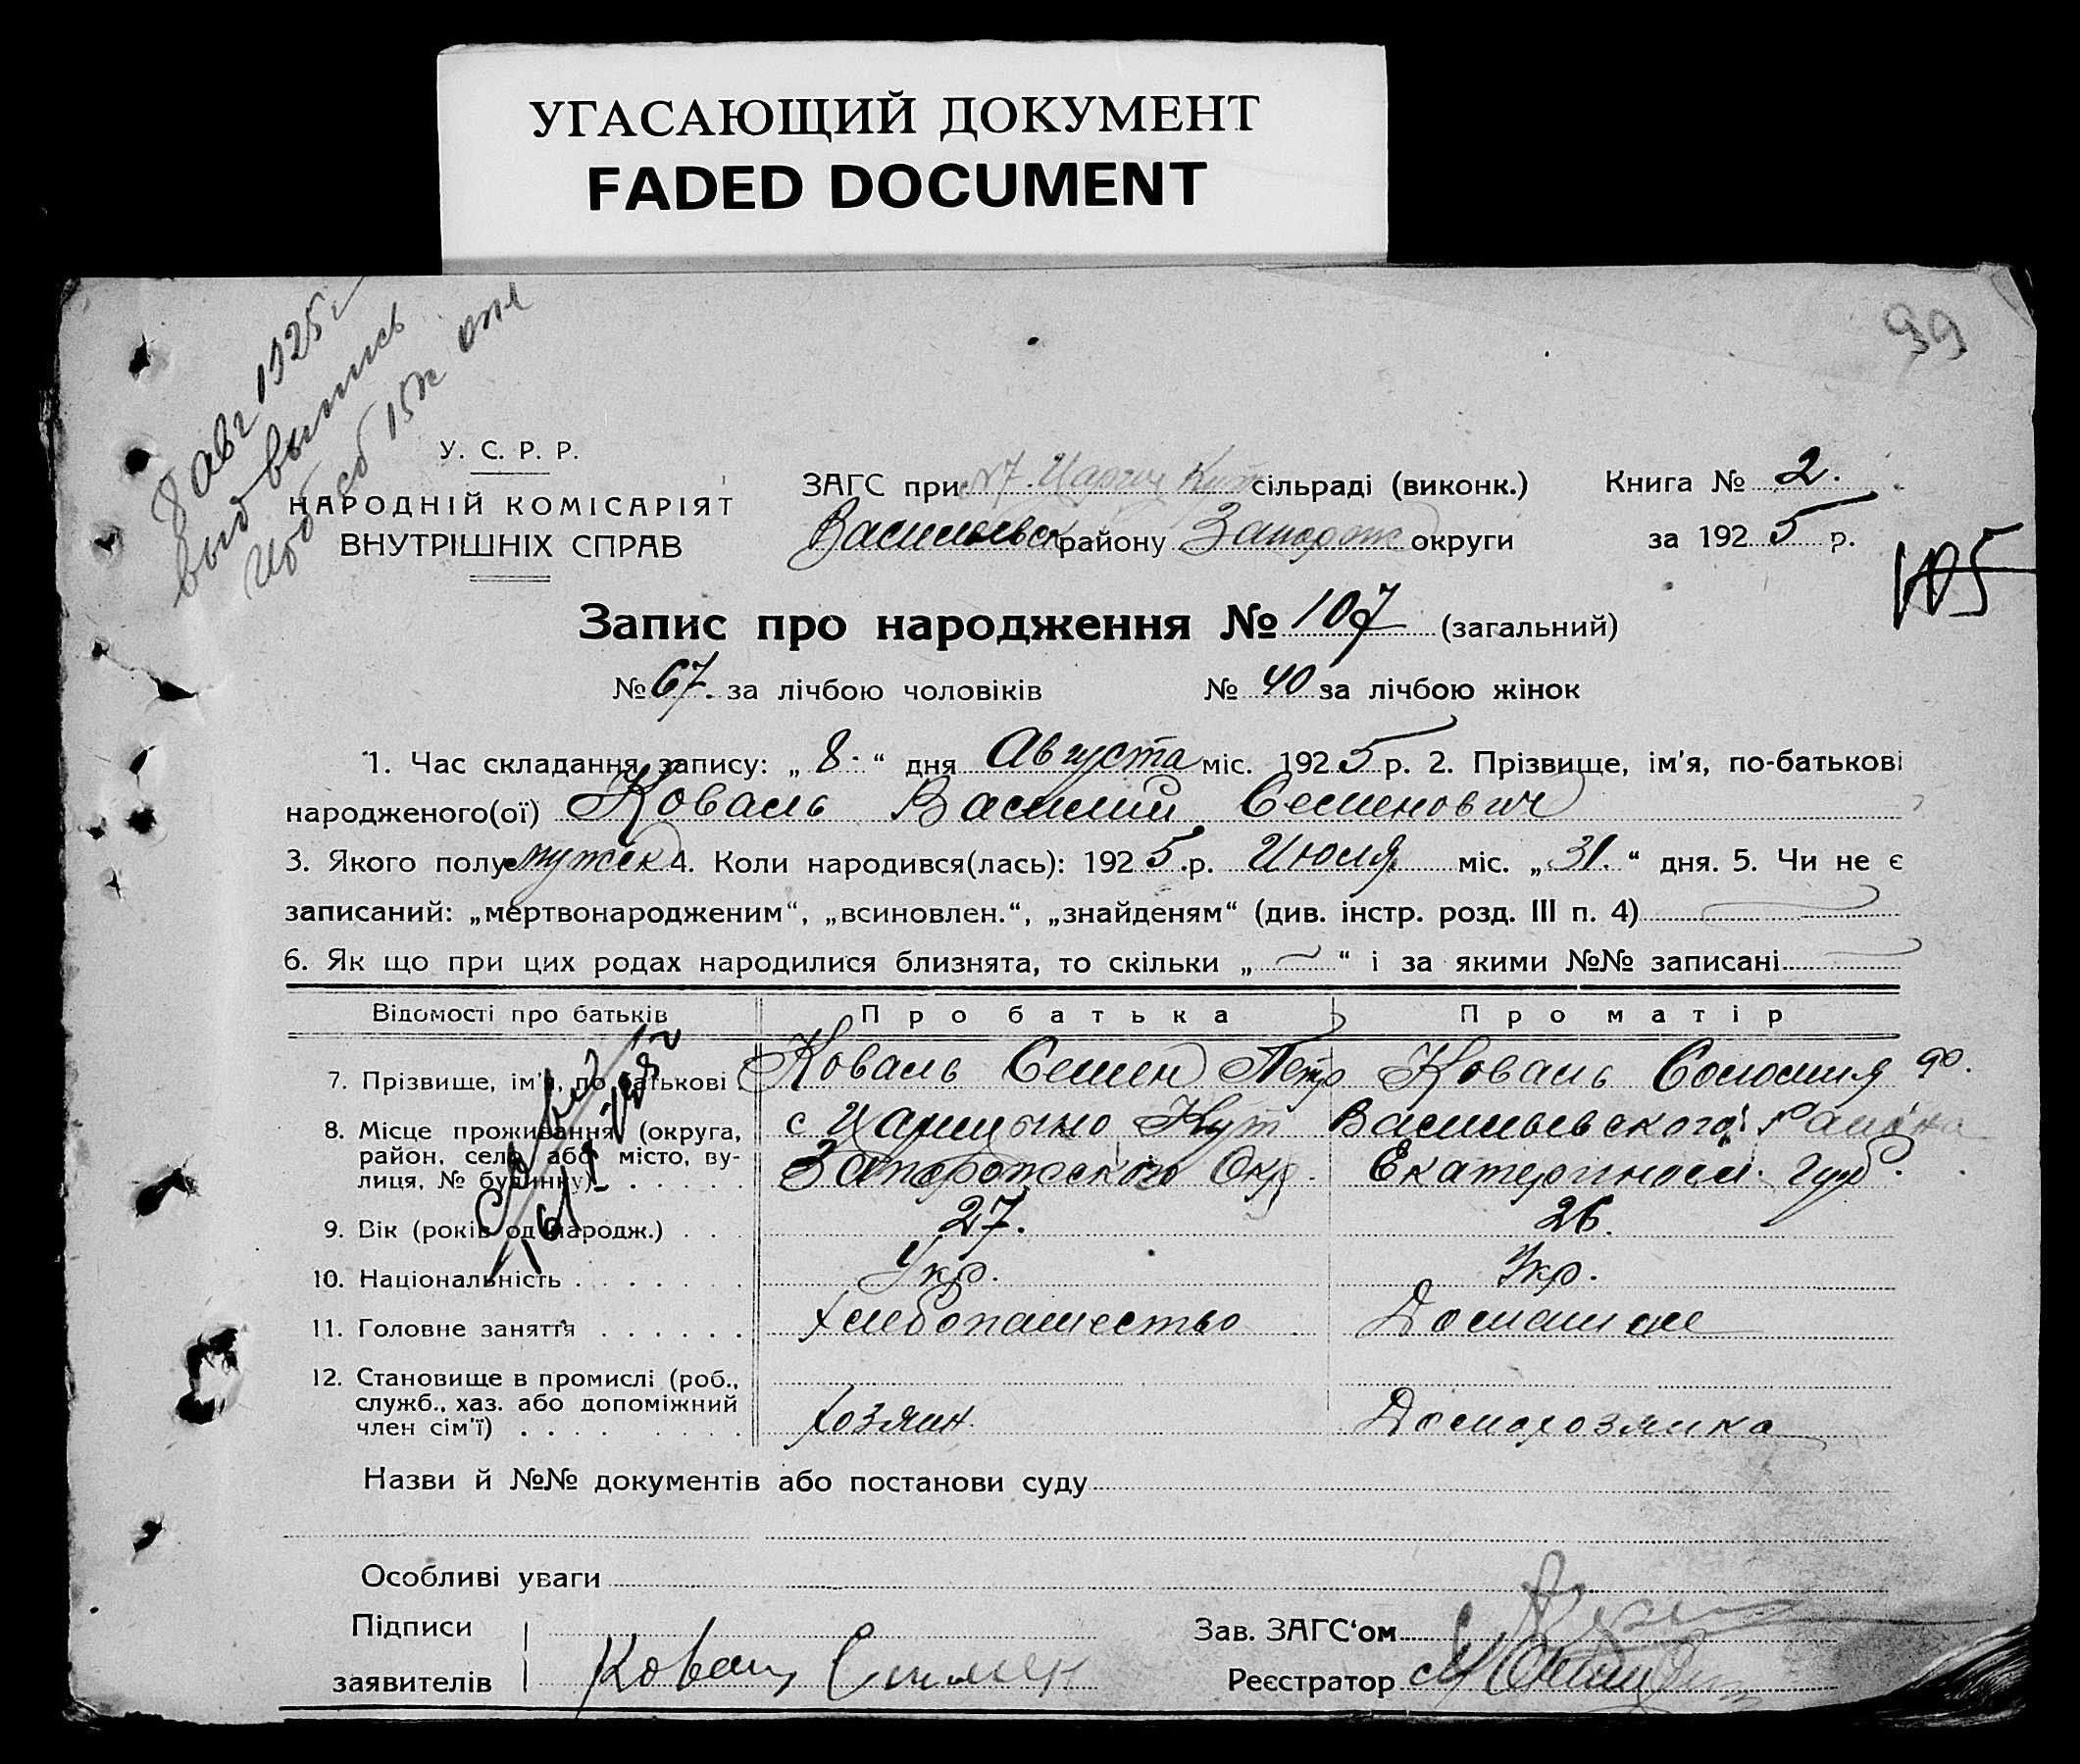 УГАСАЮЩИЙ ДОКУМЕНТ
FADED DOCUMENT
99
8 авг 1925 г
выд выпись
У. С. Р. Р.
НАРОДНІЙ КОМІСАРІЯТ
ВНУТРІШНІХ СПРАВ
ЗАГС при Кут сільраді (виконк.)
Васильевск району Запорож округи
Книга № 2.
за 1925 р.
105
Запис про народження № 107 (загальний)
№ 67. за лічбою чоловіків № 40 за лічбою жінок
1. Час складання запису: „ 8. “ дня Августа міс. 1925 р. 2. Прізвище, ім'я, по-батькові
народженого(ої) Коваль Василий Семенович
3. Якого полу мужск 4. Коли народився(лась): 1925 р. Июля міс. „ 31. “ дня. 5. Чи не є
записаний: „мертвонародженим“, „всиновлен.“, „знайденям“ (див. інстр. розд. III п. 4)
6. Як що при цих родах народилися близнята, то скільки „ — “ і за якими №№ записані
Відомості про батьків Про батька Про матір
7. Прізвище, ім'я, по батькові Коваль Семен Петр Коваль Соломия
8. Місце проживання (округа, район, село або місто, вулиця, № будинку) с Царицыно Кут Васильевского Района
Запорожского Окр. Екатериносл. губ.
9. Вік (років од народж.) 27. 26.
10. Національність Укр. Укр.
11. Головне заняття Хлебопашество Домашние
12. Становище в промислі (роб.,
служб., хаз. або допоміжний
член сім'ї) Хозяин Домохозяика
Назви й №№ документів або постанови суду
Особливі уваги
Підписи
заявителів Коваль Семен
Зав. ЗАГС‘ом
Реєстратор